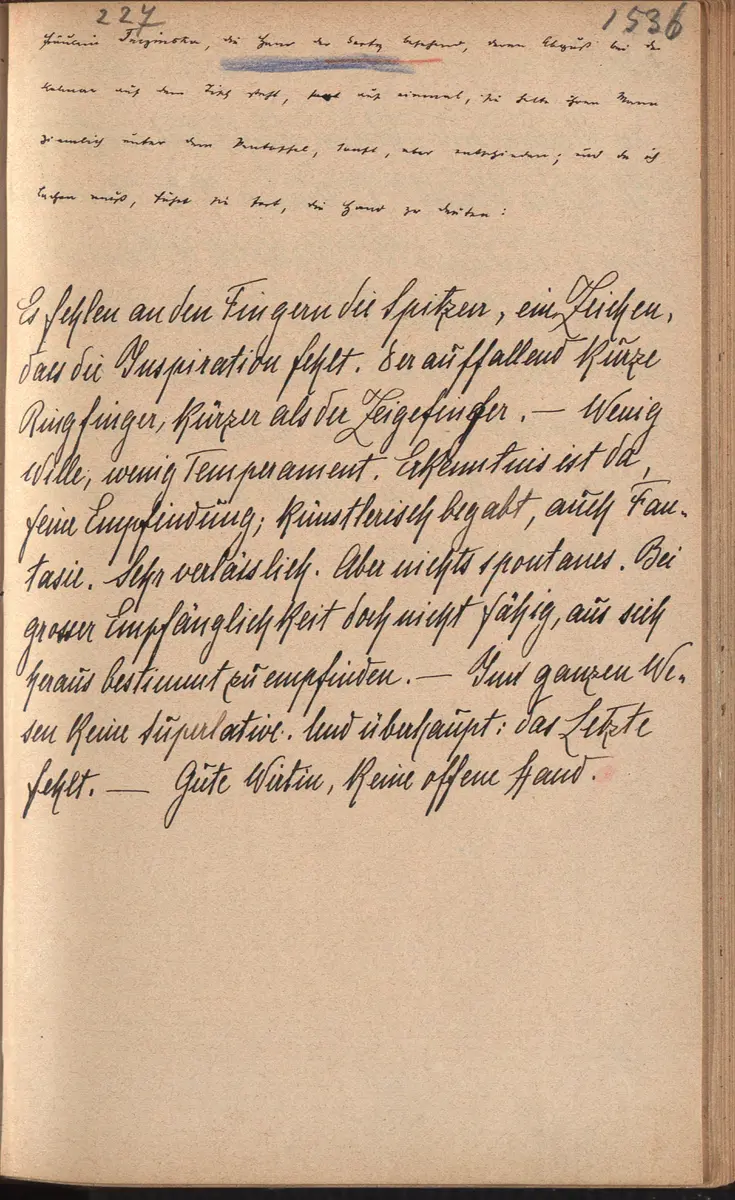 227 1536
Fräulein, die Hand der Sorby besehend, deren Abguß bei der
auf dem Tisch steht, sagt auf einmal, sie halte ihren Mann
ziemlich unter dem Pantoffel, sanft, aber entschieden; und da ich
lachen muß, fährt sie fort, die Hand zu deuten:
Es fehlen an den Fingern die Spitzen, ein Zeichen,
dass die Inspiration fehlt. Der auffallend kurze
Ringfinger, kürzer als der Zeigefinger. — Wenig
Wille, wenig Temperament. Erkenntnis ist da,
feine Empfindung; künstlerisch begabt, auch Fan-
tasie. Sehr verlässlich. Aber nichts spontanes. Bei
grosser Empfänglichkeit doch nicht fähig, aus sich
heraus bestimmt zu empfinden. — Im ganzen We-
sen keine Superlative. Und überhaupt: das Letzte
fehlt. — Gute Wirtin, keine offene Hand.